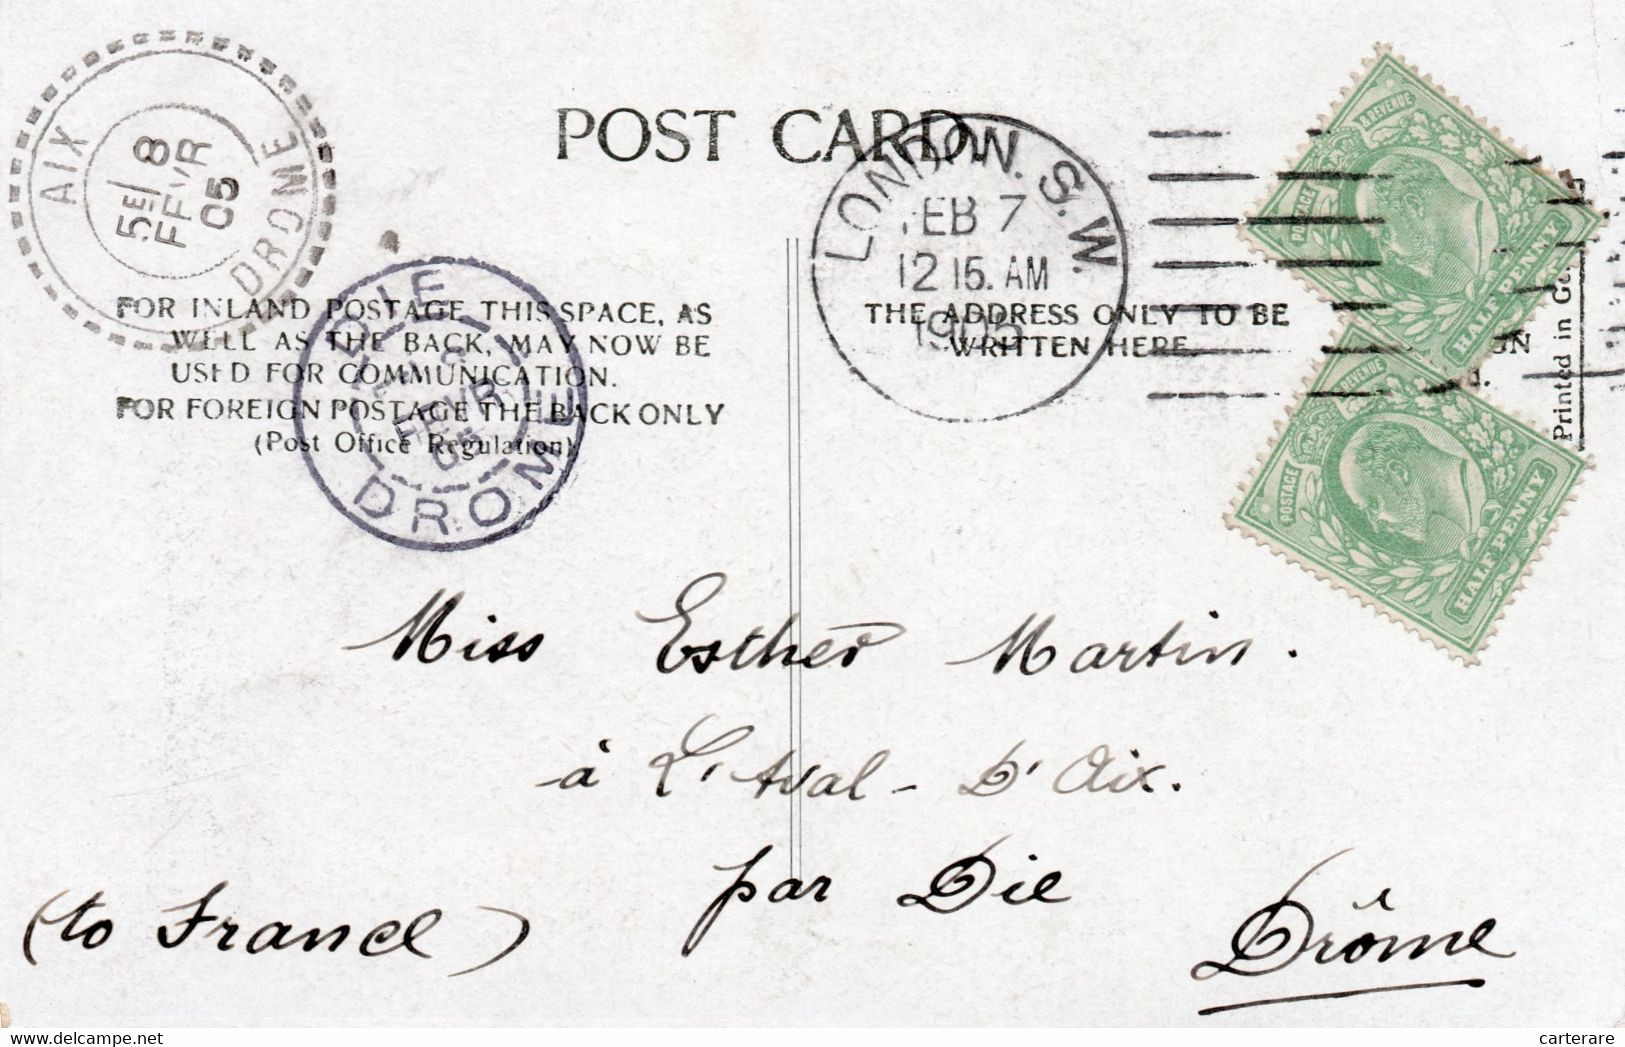 POST CARD.
AIX
5E 8
FEVR
05
DROME
LONDON. S.W.
FEB 7
12 15. AM
1905
& REVENUE
POSTAGE
HALF PENNY
FOR INLAND POSTAGE THIS SPACE, AS
WELL AS THE BACK, MAY NOW BE
USED FOR COMMUNICATION.
FOR FOREIGN POSTAGE THE BACK ONLY
(Post Office Regulation)
DIE
8
FEVR
05
DROME
THE ADDRESS ONLY TO BE
WRITTEN HERE.
Printed in Ge
& REVENUE
POSTAGE
HALF PENNY
Miss Esther Martin.
à L'Aval - D'Aix.
par Die
(to France)
Drôme
https://www.delcampe.net
carterare